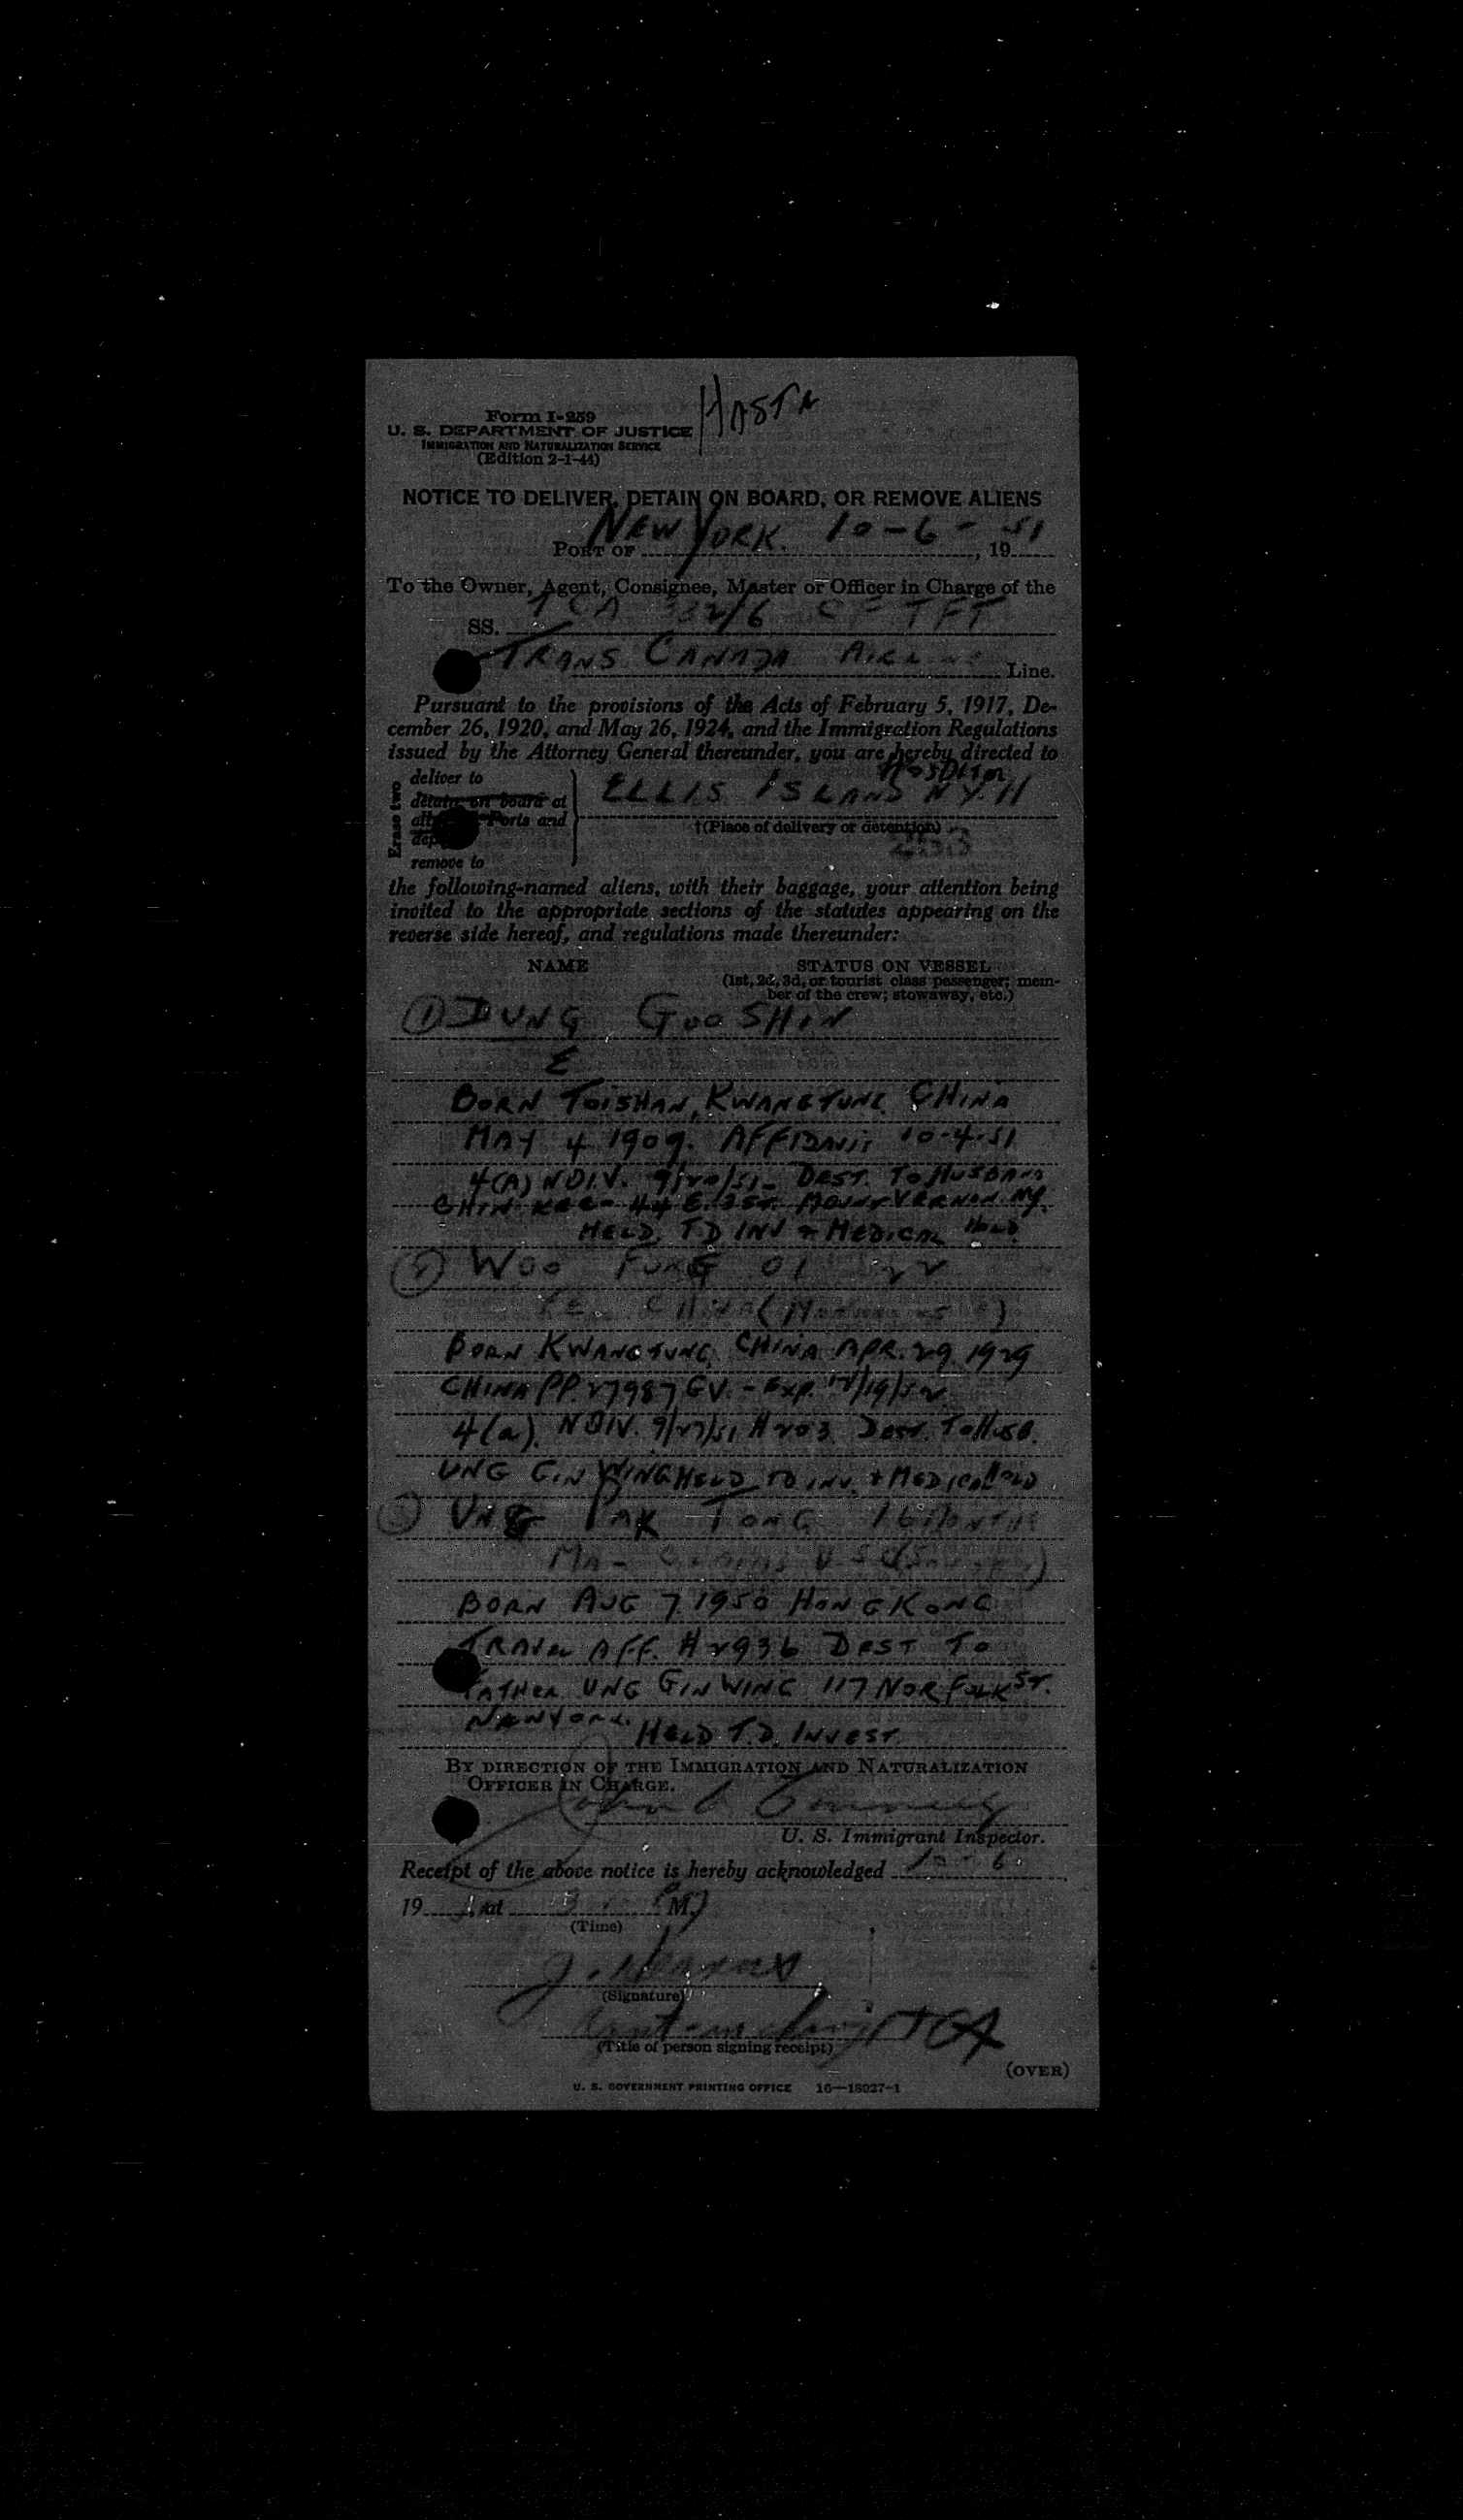 Form I-259
U. S. DEPARTMENT OF JUSTICE
IMMIGRATION AND NATURALIZATION SERVICE
(Edition 2-1-44)
NOTICE TO DELIVER, DETAIN ON BOARD, OR REMOVE ALIENS
PORT OF NEW YORK. 10-6-, 19 51
To the Owner, Agent, Consignee, Master or Officer in Charge of the
SS. TCA 332/6 CF TFT
TRANS CANADA Line.
Pursuant to the provisions of the Acts of February 5, 1917, De-
cember 26, 1920, and May 26, 1924, and the Immigration Regulations
issued by the Attorney General thereunder, you are hereby directed to
Erase two
deliver to
detain on board at
Ports and
remove to
ELLIS ISLAND N.Y.H
†(Place of delivery or detention)
the following-named aliens, with their baggage, your attention being
invited to the appropriate sections of the statutes appearing on the
reverse side hereof, and regulations made thereunder:
NAME STATUS ON VESSEL
(1st, 2d, 3d, or tourist class passenger; mem-
ber of the crew; stowaway, etc.)
① DUNG GOO SHIN
BORN TOISHAN, KWANGTUNG CHINA
MAY 4 1909. AFFIDAVIT 10-4-51
4(A) NDIV. 9/20/51- DEST. TO HUSBAND
CHIN 44 E. 3 ST. MOUNT VERNON NY.
HELD TD INV + MEDICAL HOLD
② WOO FUNG OI 22
CHINA
BORN KWANGTUNG, CHINA APR. 29, 1929
CHINA PP. 27987 GV. - EXP. 12/19/52
4(a). NDIV. 9/27/51 H203 DEST. TO HUSB.
UNG GIN WING HELD TD INV. + MEDICAL HOLD
③ UNG PAK TONG
BORN AUG 7 1950 HONG KONG
TRAVEL AFF. H2936 DEST TO
FATHER UNG GIN WING 117 NORFOLK ST.
NEW YORK. HELD T.D. INVEST.
BY DIRECTION OF THE IMMIGRATION AND NATURALIZATION
OFFICER IN CHARGE.
John
U. S. Immigrant Inspector.
Receipt of the above notice is hereby acknowledged 10-6,
19, at M.
(Time)
J.
(Signature)
TCA
(Title of person signing receipt)
(OVER)
U. S. GOVERNMENT PRINTING OFFICE 16—18027-1